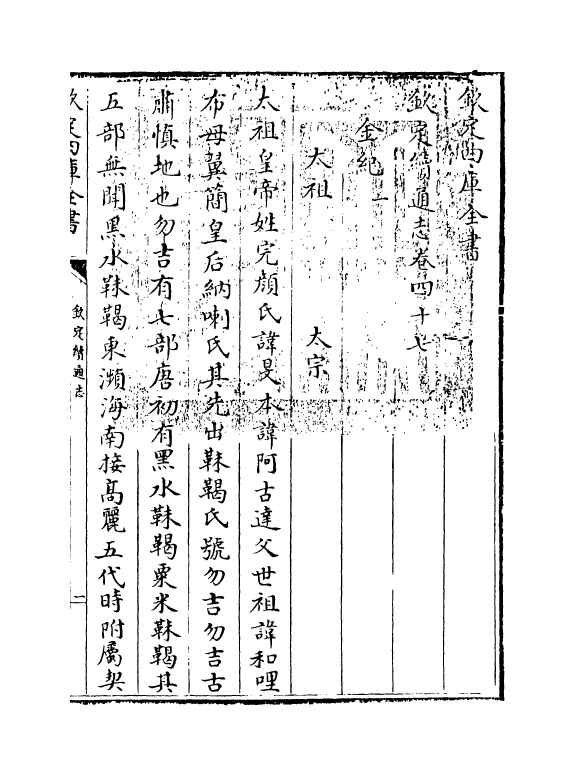 欽定四庫全書
欽定續通志卷四十七
金紀一
太祖　太宗
太祖皇帝姓完顏氏諱旻本諱阿古達父世祖諱和哩
布母翼簡皇后納喇氏其先出靺鞨氏號勿吉勿吉古
肅慎地也勿吉有七部唐初有黑水靺鞨粟米靺鞨其
五部無聞黑水靺鞨東瀕海南接高麗五代時附屬契
欽定四庫全書
欽定續通志